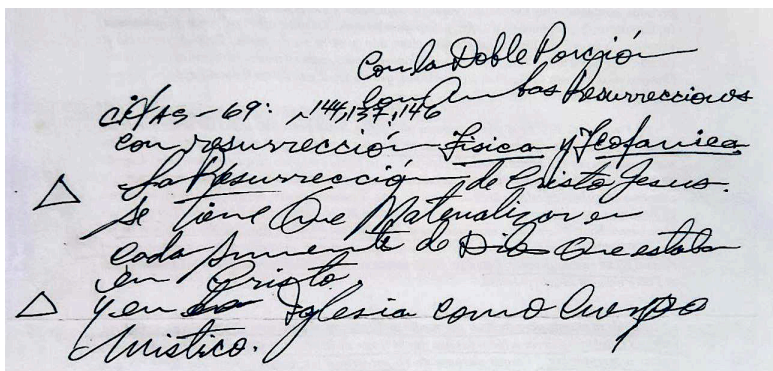 Con la Doble Porción
Con Ambas Resurrecciones
CITAS-69: 144,137,146
con resurrección Fisica y Teofanica
La Resurrección de Cristo Jesus.
Se tiene Que Materializar en
cada simiente de Dios Que estaba
en Cristo.
y en la Iglesia como Cuerpo
Mistico.